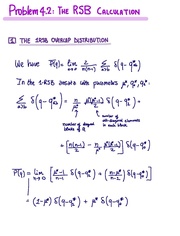 PROBLEM 4.2: THE RSB CALCULATION
THE 1RSB OVERLAP DISTRIBUTION
We have P(q) = lim_{n→0} 2/(n(n-1)) Σ_{a>b} δ(q-q*_{ab})
In the 1-RSB ansatz with parameters μ*, q*_1, q*_0:
Σ_{a>b} δ(q-q*_{ab}) = n/μ* μ*(μ*-1)/2 δ(q-q*_1) +
number of diagonal blocks of Q
number of off-diagonal elements in each block
+ [n(n-1)/2 - n/μ* μ*(μ*-1)/2] δ(q-q*_0)
P(q) = lim_{n→0} [μ*-1/n-1 δ(q-q*_1) + (n-μ*/n-1) δ(q-q*_0)]
= (1-μ*) δ(q-q*_1) + μ* δ(q-q*_0)